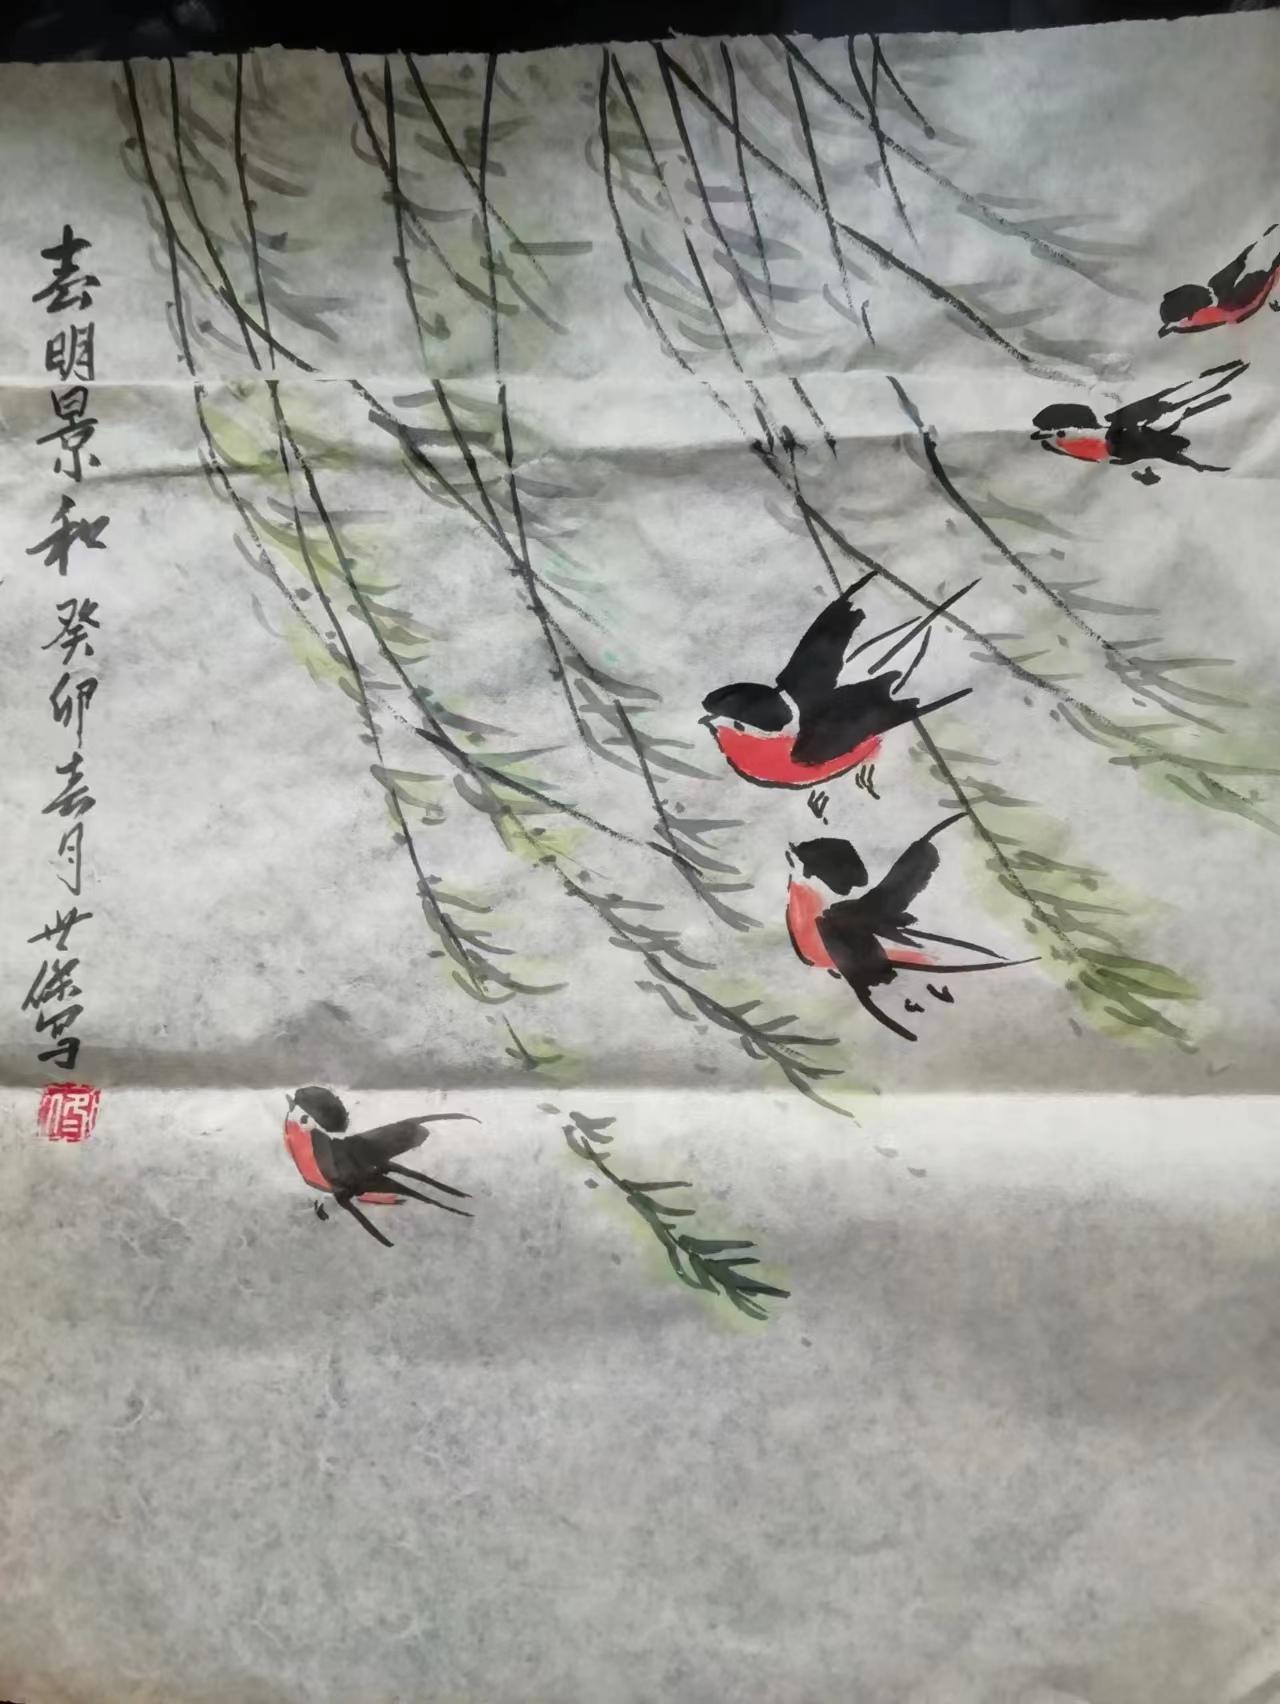 春明景和 癸卯春月 世保写